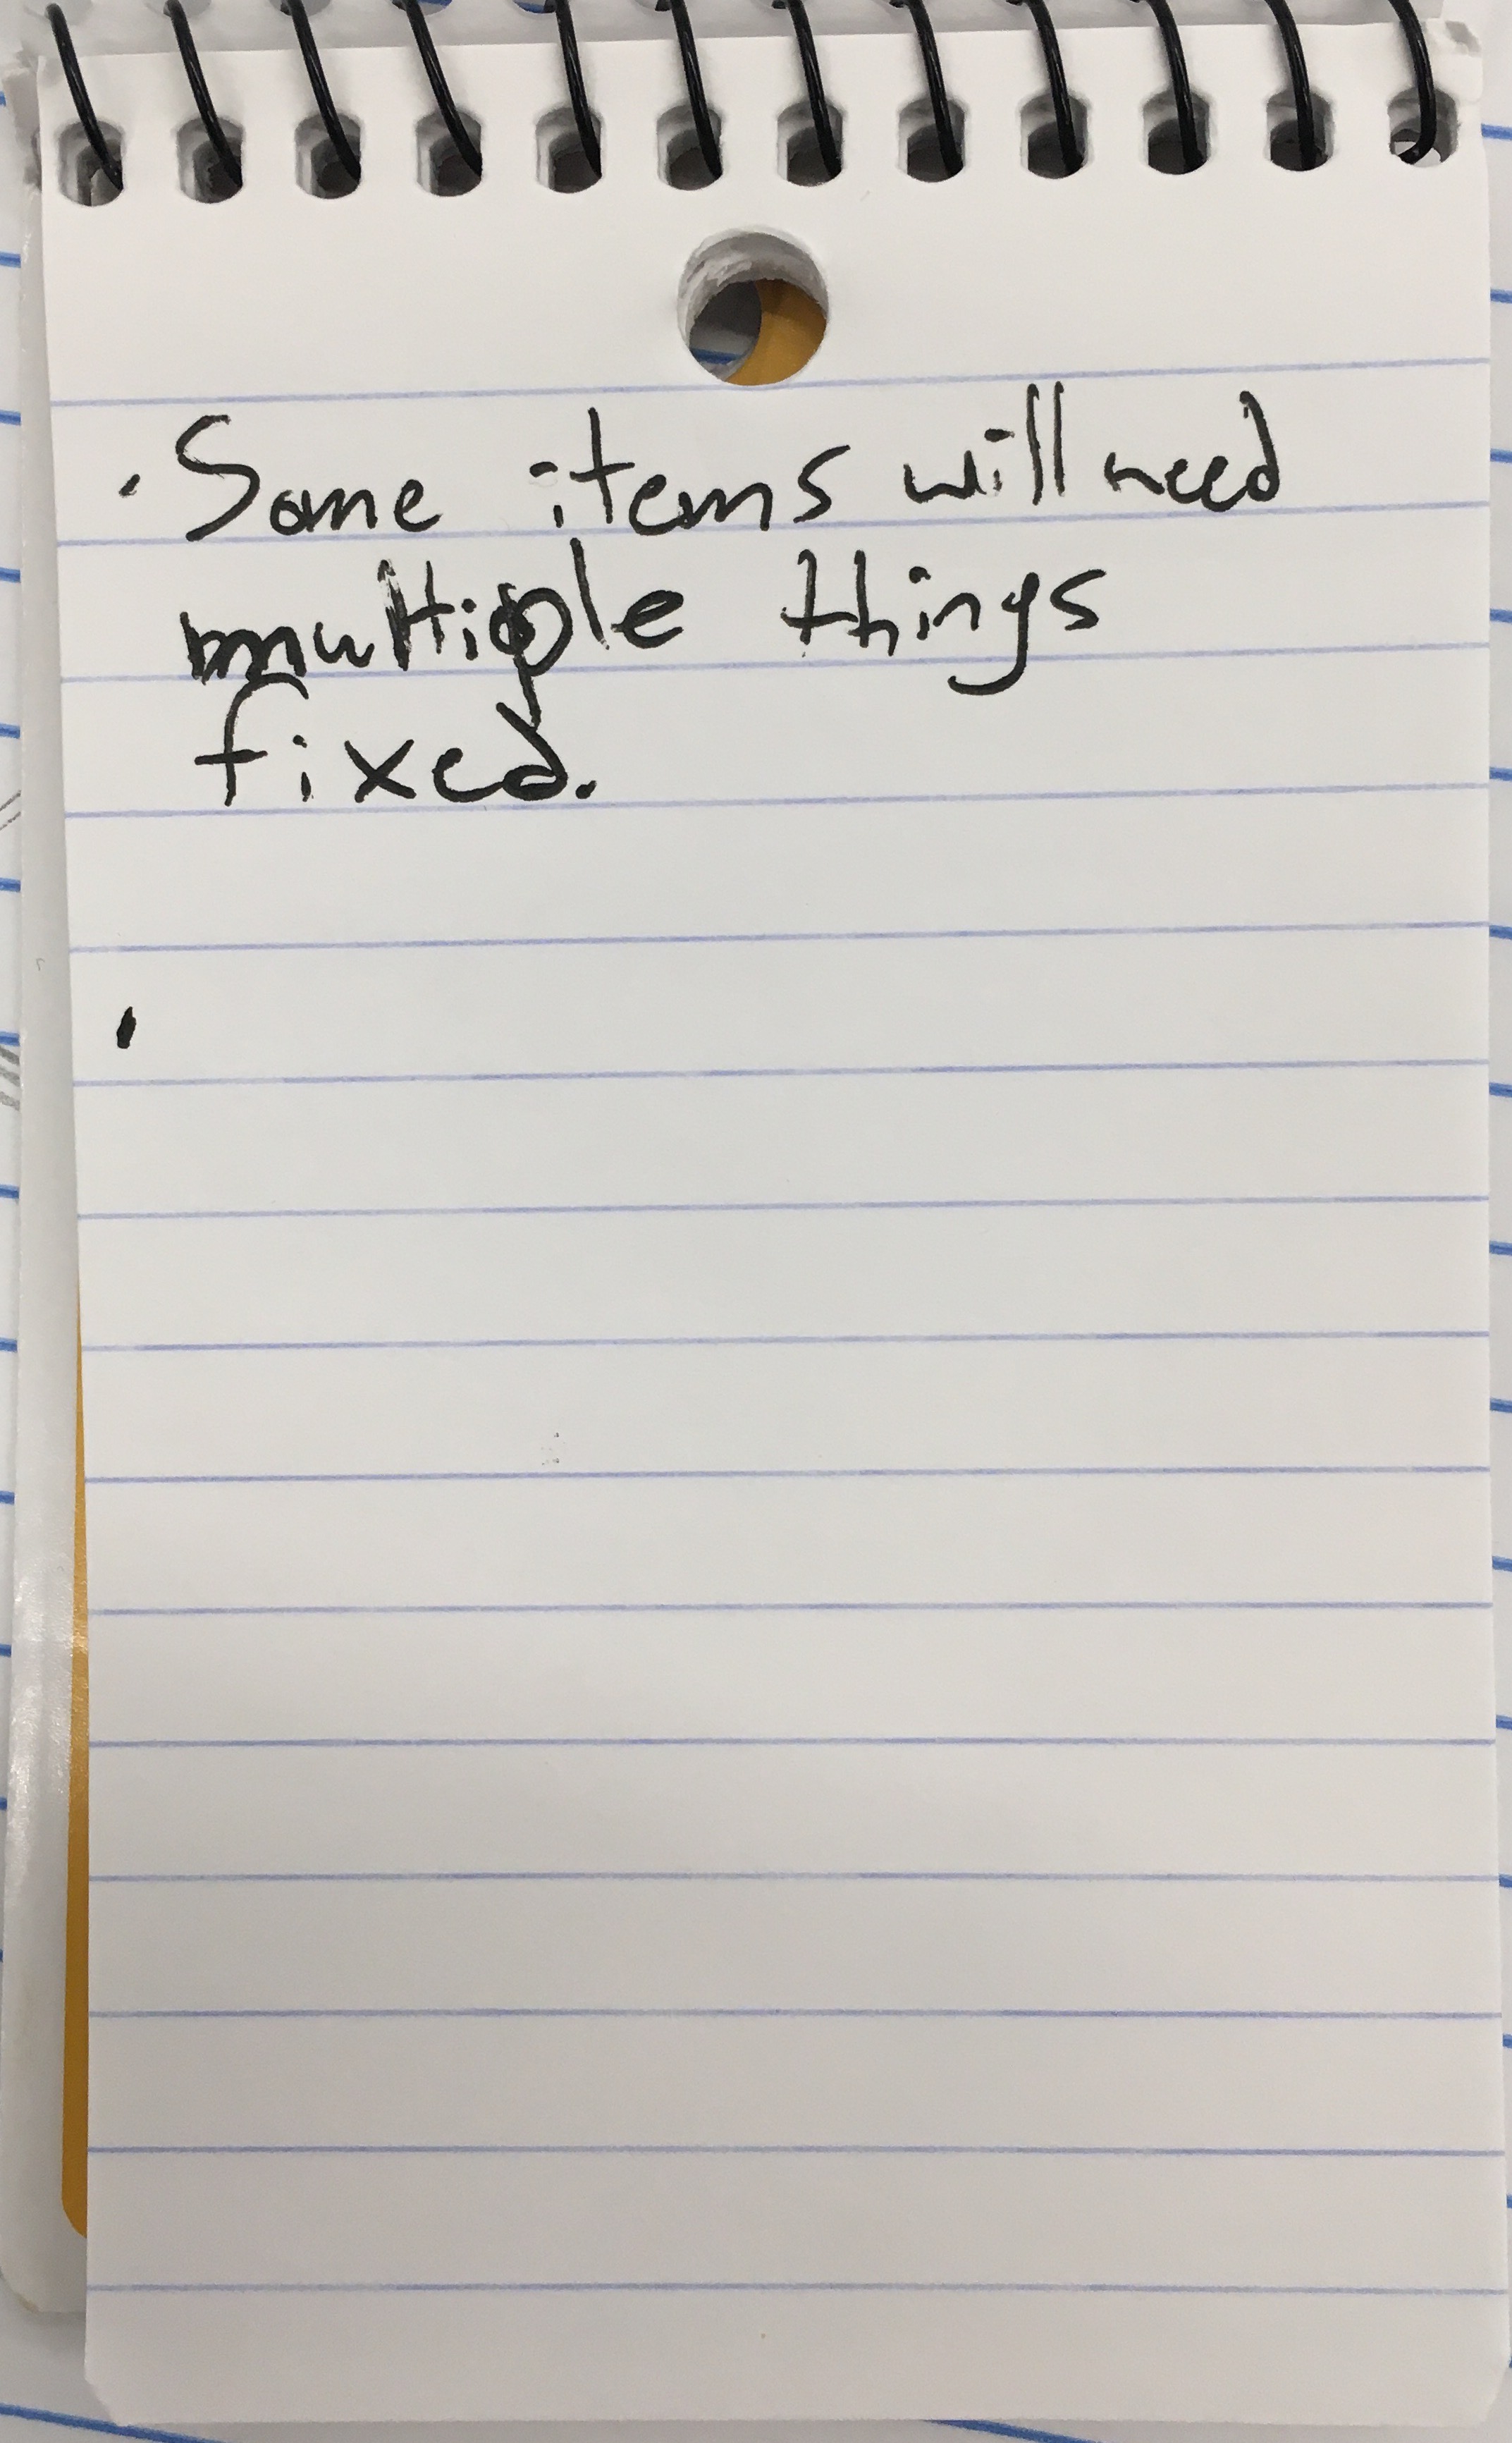 · Some items will need
multiple things
fixed.
·